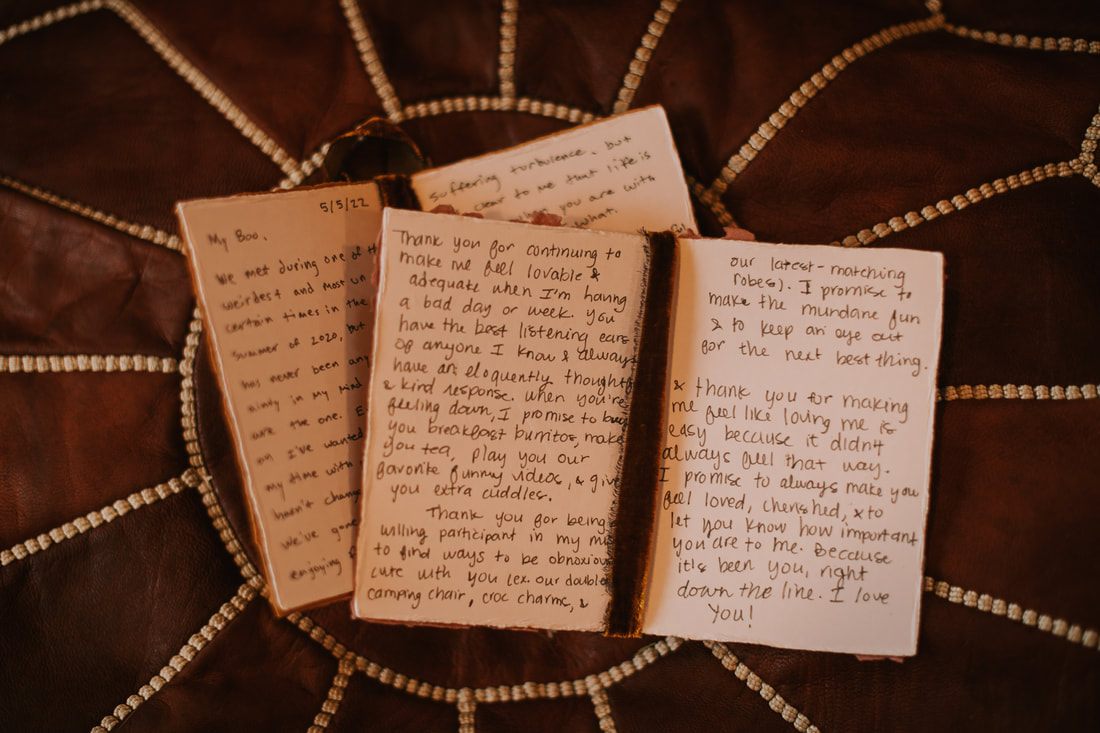 5/5/22
My Boo,
We met during one of th
weirdest and most un
certain times in the
summer of 2020, but
has never been any
in my mind
are the one. E
on I've wanted
my time with
hasn't change
We've gone
enjoying
suffering turbulence, but
clear to me that life is
when you are with
what.
Thank you for continuing to
make me feel lovable &
adequate when I'm having
a bad day or week. You
have the best listening ears
of anyone I know & always
have an eloquently thought
& kind response. When you're
feeling down, I promise to buy
you breakfast burritos, make
you tea, play you our
favorite funny videos, & give
you extra cuddles.
Thank you for being
willing participant in my mi
to find ways to be obnoxiou
cute with you (ex. our double
camping chair, croc charms, &
our latest-matching
robes). I promise to
make the mundane fun
& to keep an eye out
for the next best thing.
& thank you for making
me feel like loving me is
easy because it didn't
always feel that way.
I promise to always make you
feel loved, cherished, & to
let you know how important
you are to me. Because
it's been you, right
down the line. I love
You!